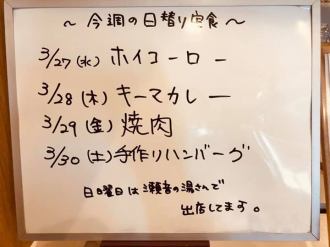 ～今週の日替り定食～
3/27(水) ホイコーロー
3/28(木) キーマカレー
3/29(金) 焼肉
3/30(土) 手作りハンバーグ
日曜日は瀬音の湯さんで
出店してます。